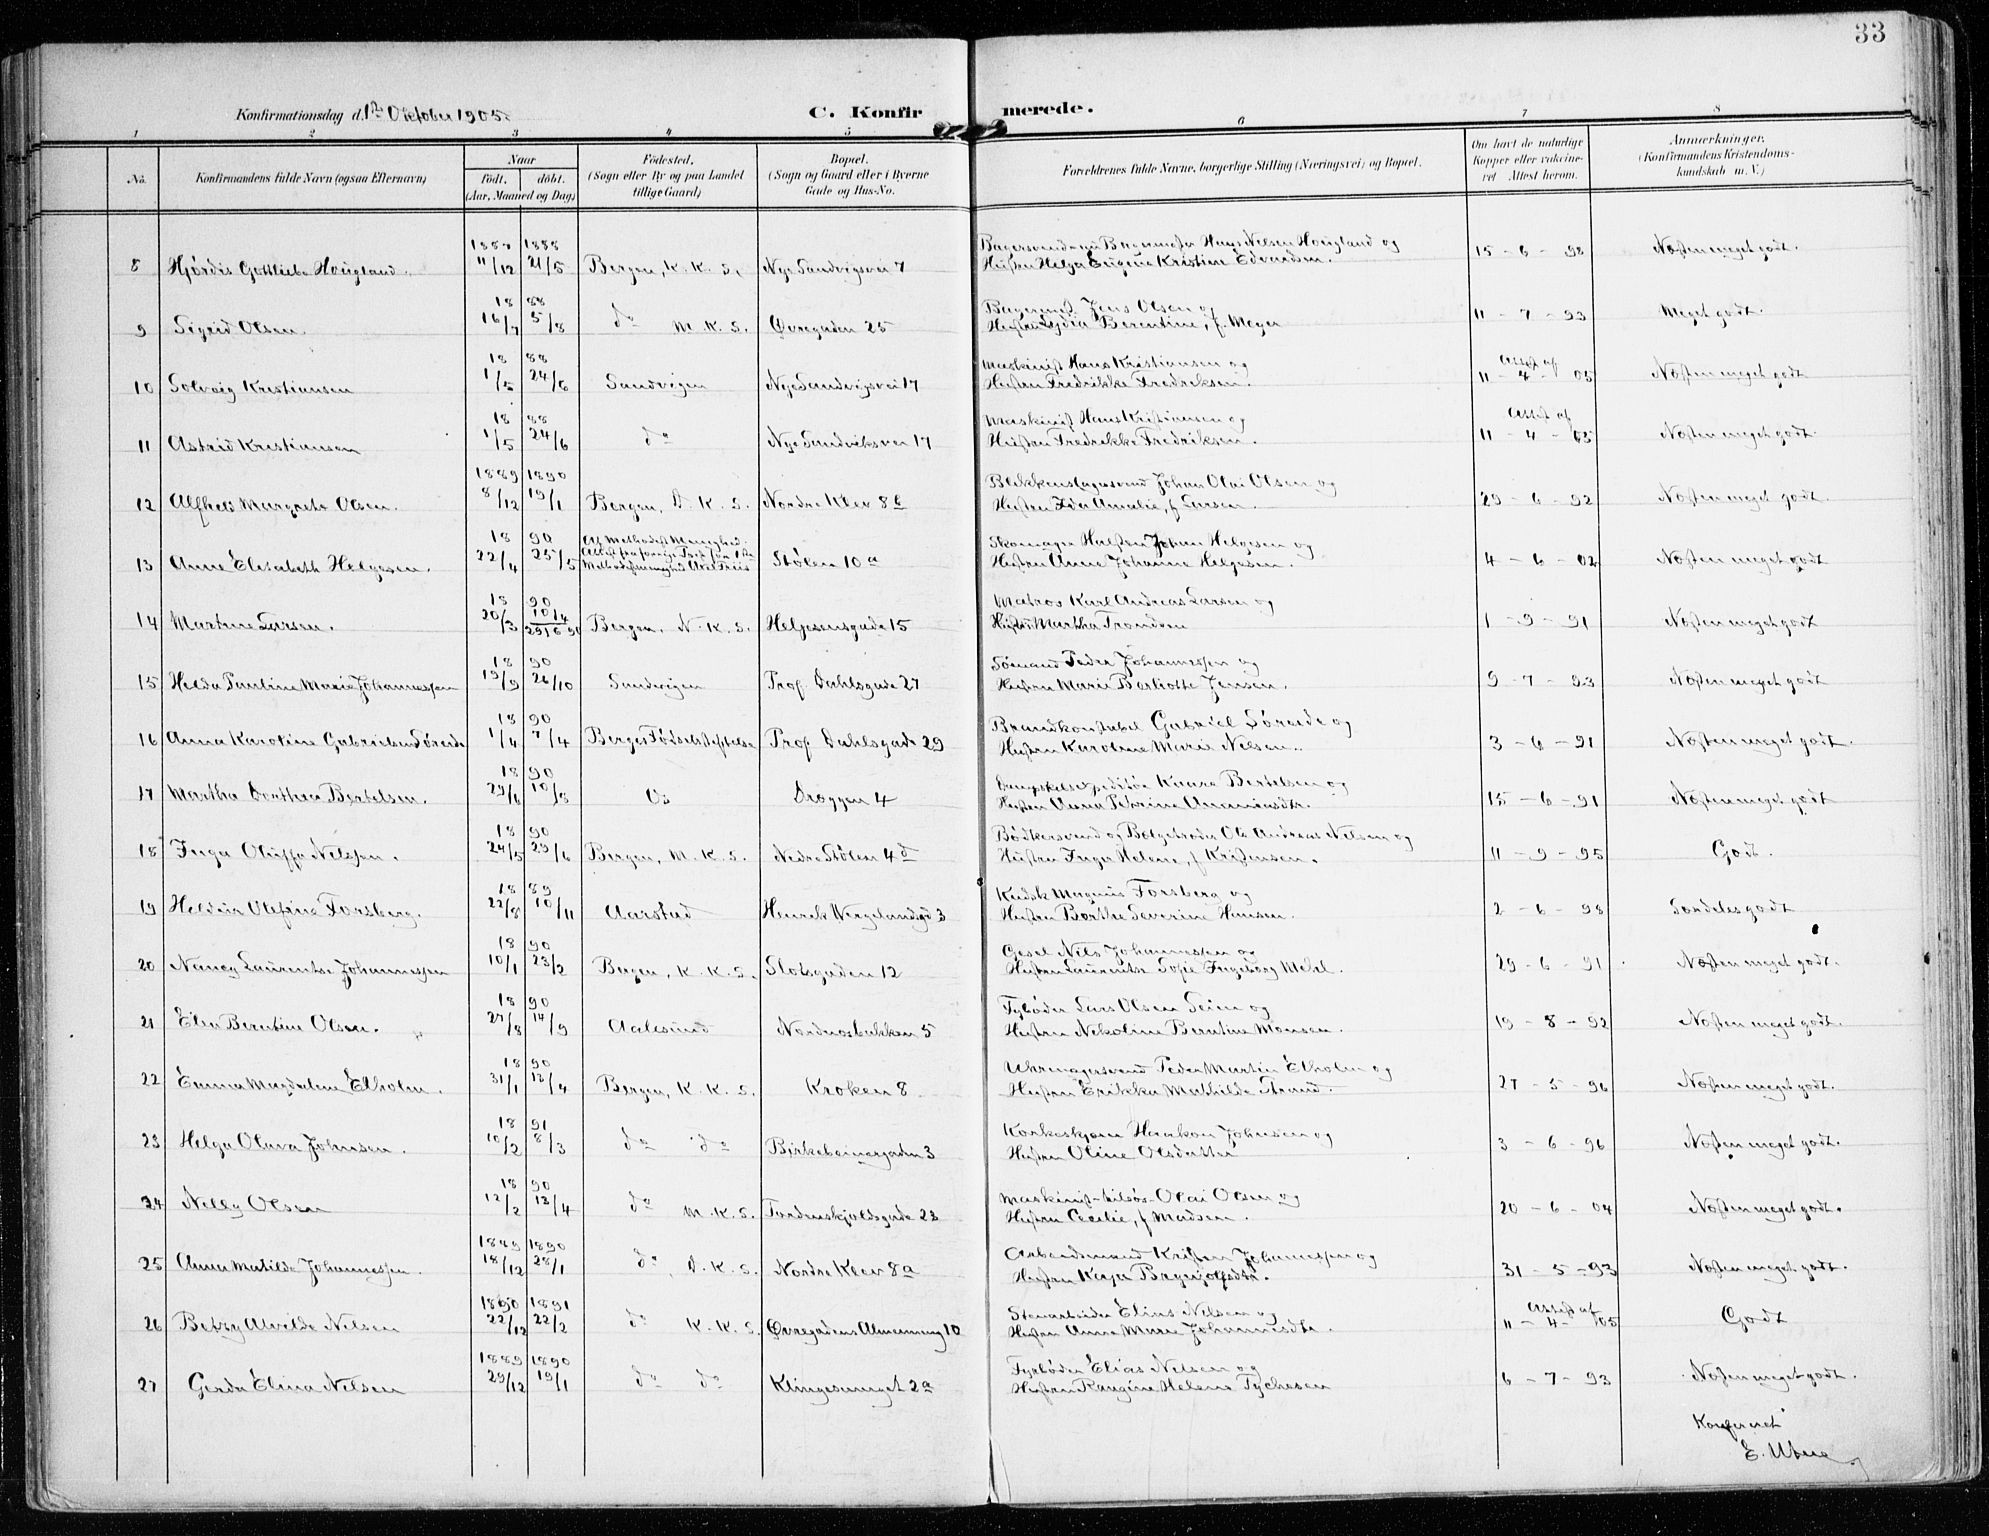 33
Konfirmationsdag d. 1ste Oktober 1905.
C. Konfirmerede.
1 2 3 4 5 6 7 8
No. Konfirmandens fulde Navn (ogsaa Efternavn) Naar født. døbt. (Aar, Maaned og Dag) Fødested. (Sogn eller By og paa Landet tillige Gaard) Bopæl. (Sogn og Gaard eller i Byerne Gade og Hus-No. Forældrenes fulde Navne, borgerlige Stilling (Næringsvei) og Bopæl. Om havt de naturlige Kopper eller vaccineret. Attest herom. Anmærkninger. (Konfirmandens Kristendomskundskab m. V.)
8 Hjördis Gottliebe Hougland. 11/12 1888 21/5 Bergen, K. K. S. Nye Sandvigsvei 7 Hans Nilsen Hougland og
Hustru Helga Eugenie Kristine Edvardsen. 15-6-98 Næsten meget godt.
9 Sigrid Olsen 18 88 16/7 5/8 do M. K. S. Øvregaden 25 Jens Olsen og
Hustru Lydia Berentine, f. Meyer 11-7-93 Meget godt.
10 Solveig Kristiansen 18 88 1/5 24/6 Sandvigen Nye Sandvigsvei 17 Maskinist Hans Kristiansen og
Hustru Fredrikke Fredriksen. Attest af 11-4-05 Næsten meget godt
11 Astrid Kristiansen 18 88 1/5 24/6 do Nye Sandviksvei 17 Maskinist Hans Kristiansen og
Hustru Fredrikke Fredriksen. Attest af 11-4-05 Næsten meget godt.
12 Alfhild Margrete Olsen. 1889 1890 8/12 19/1 Bergen, D. K. S. Nordre Klev 8 Blikkenslagersvend Johan Olai Olsen og
Hustru Ida Amalie, f Larsen. 29-6-92 Næsten meget godt.
13 Anne Elisabeth Helgesen. 18 90 22/4 25/5 Af Methodist Menighed. Stølen 10a Skomager Johan Helgesen og
Hustru Anne Johanne Helgesen. 4-6-02 Næsten meget godt
14 Martine Larsen. 18 90 20/3 10/4 Bergen, N. K. S. Heljesensgade 15 Matros Karl Andreas Larsen og
Hustru Martha Trondsen 1-9-91 Næsten meget godt
15 Helda Pauline Marie Johannessen 18 90 19/9 26/10 Sandvigen Prof. Dahlsgade 27 Sømand Peder Johannessen og
Hustru Marie Jensen. 9-7-93 Næsten meget godt
16 Anna Karoline Gabrielsen Søreide 18 90 1/4 7/4 Bergs Fødselsstiftelse Prof. Dahlsgade 29 Brandkonstabel Gabriel Søreide og
Hustru Karoline Marie Nilsen. 3-6-91 Næsten meget godt.
17 Martha Dorthea Bertelsen. 18 90 29/6 10/8 Os Dræggen 4 Knare Bertelsen og
Hustru Anna Petrine 15-6-91 Næsten meget godt
18 Inga Oluffa Nilssen. 18 90 24/5 29/6 Bergen, M. K. S. Nedre Stølen 4d Bødkersvend og Ole Andreas Nilsen og
Hustru Inga Helene, f Kristensen. 11-9-95 Godt.
19 Olefine Forsberg. 18 89 22/8 10/11 Aarstad Henrik Wergelandsgd 3 Magnus Forsberg og
Hustru Severine Hansen. 2-6-98 Særdeles godt
20 Nancy Laurentse Johannessen 18 90 10/1 23/2 Bergen, K. K. S. Slotsgaden 12 Nils Johannessen og
Hustru Laurentse Sofie Ingeborg Mehl. 29-6-91 Næsten meget godt.
21 Elen Berntine Olsen. 18 90 27/8 14/9 Aalesund Nordnæsbakken 5 Fyrbøder Lars Olsen Seim og
Hustru Nikoline Berntine Monsen. 19-8-92 Næsten meget godt.
22 Emma Magdalene Elholm. 18 90 31/1 13/4 Bergen, K. K. S. Kroken 8 Uhrmagersvend Peder Martin Elholm og
Hustru Erikka Mathilde Strand. 27-5-96 Næsten meget godt.
23 Helga Olava Johnsen. 18 91 10/2 8/3 do do Birkebeinergaden 3 Haakon Johnsen og
Hustru Oline Olsdatter 3-6-96 Næsten meget godt.
24 Nelly Olsen 18 90 12/2 13/4 do M. K. S. Tordenskjoldsgade 23 Maskinist-tilsøs-Olai Olsen og
Hustru Cecilie, f Madsen. 20-6-04 Næsten meget godt.
25 Anna Matilde Johannessen. 1889 1890 18/12 28/1 do D. K. S. Nordre Klev 8a Arbeidsmand Kristen Johannessen og
Hustru Kaja Brynjolfsdtr. 31-5-93 Næsten meget godt.
26 Betzy Alvilde Nilsen 1890 1891 22/12 22/2 do K. K. S. Øvregadens Almenning 10 Stenarbeider Elias Nilsen og
Hustru Anna Marie Johannesdtr. Attest af 11-4-05 Godt
27 Gerda Elina Nilsen 1889 1890 29/12 19/1 do do Klingesmuget 2a Fyrbøder Elias Nilsen og
Hustru Helene Tychesen 6-7-93 Næsten meget godt.
Konfereret